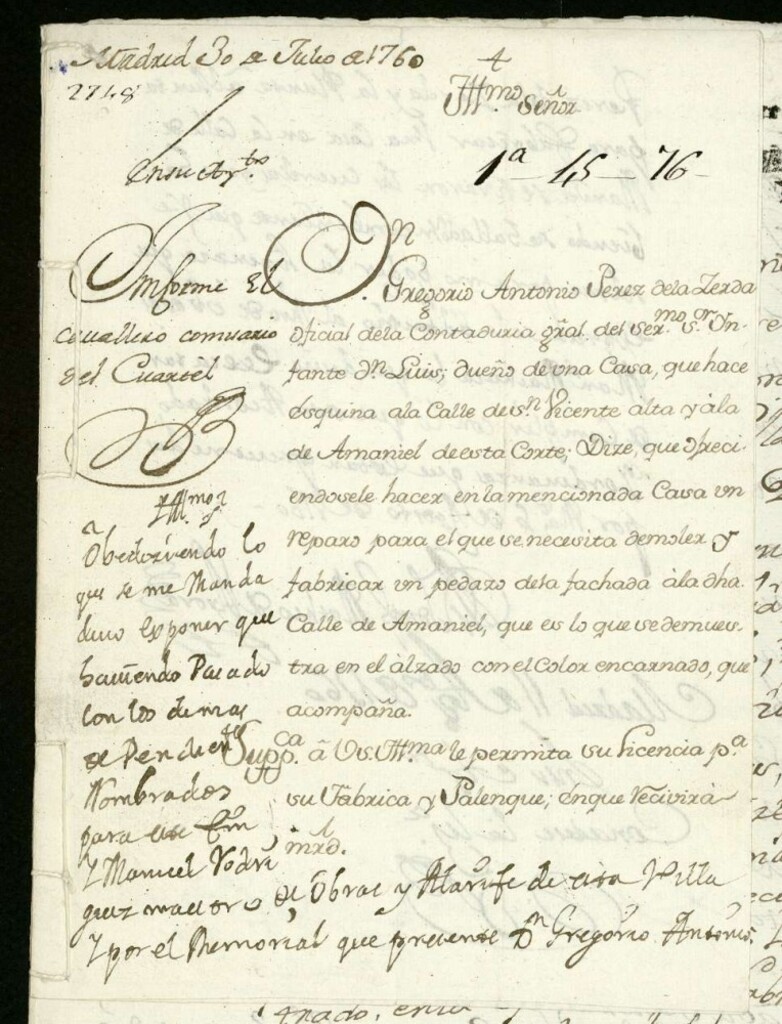 Madrid 30 de Julio de 1760
2748
Yll.mo Señor
1ª - 45 - 76 -
Informe El
Cavallero comisario
del Cuartel
Dn. Gregorio Antonio Perez de la Zerda
oficial de la Contaduria gral. del ser.mo s.or Yn-
fante Dn. Luis; dueño de vna Casa, que hace
esquina a la Calle de sn. Vicente alta y à la
de Amaniel de esta Corte; Dize, que ofreci-
endosele hacer en la mencionada Casa vn
reparo para el que se necesita demoler y
fabricar vn pedazo de la fachada à la dha
Calle de Amaniel, que es lo que se demues-
tra en el àlzado con el Color encarnado, que
acompaña.
Supp.ca â Vs. Yll.ma le permita su licencia p.a
su Fabrica y Palenque; en que recivirà
mrd.
Yll.mo s.r
Obedeciendo lo
que se me Manda
devo exponer que
haviendo Pasado
con los demas
Nombrados
para este
Y Manuel Rodri
guez maestro de Obras y Alarife de esta Villa
Y por el Memorial que presente Dn Gregorio Antonio